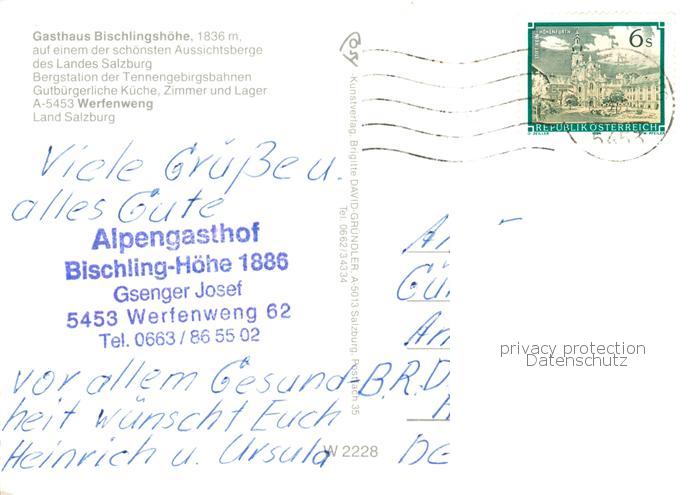 Gasthaus Bischlingshöhe, 1836 m,
auf einem der schönsten Aussichtsberge
des Landes Salzburg
Bergstation der Tennengebirgsbahnen
Gutbürgerliche Küche, Zimmer und Lager
A-5453 Werfenweg
Land Salzburg
Viele Grüße u.
alles Gute
Alpengasthof
Bischling-Höhe 1886
Gsenger Josef
5453 Werfenweng 62
Tel. 0663 / 86 55 02
vor allem Gesund-
heit wünscht Euch
Heinrich u. Ursula
Kunstverlag, Brigitte DAVID-GRÜNDLER, A-5013 Salzburg, Postfach 35
Tel. 0662/34334
W 2228
6 s
REPUBLIK ÖSTERREICH
5453
B.R.D
De
privacy protection
Datenschutz